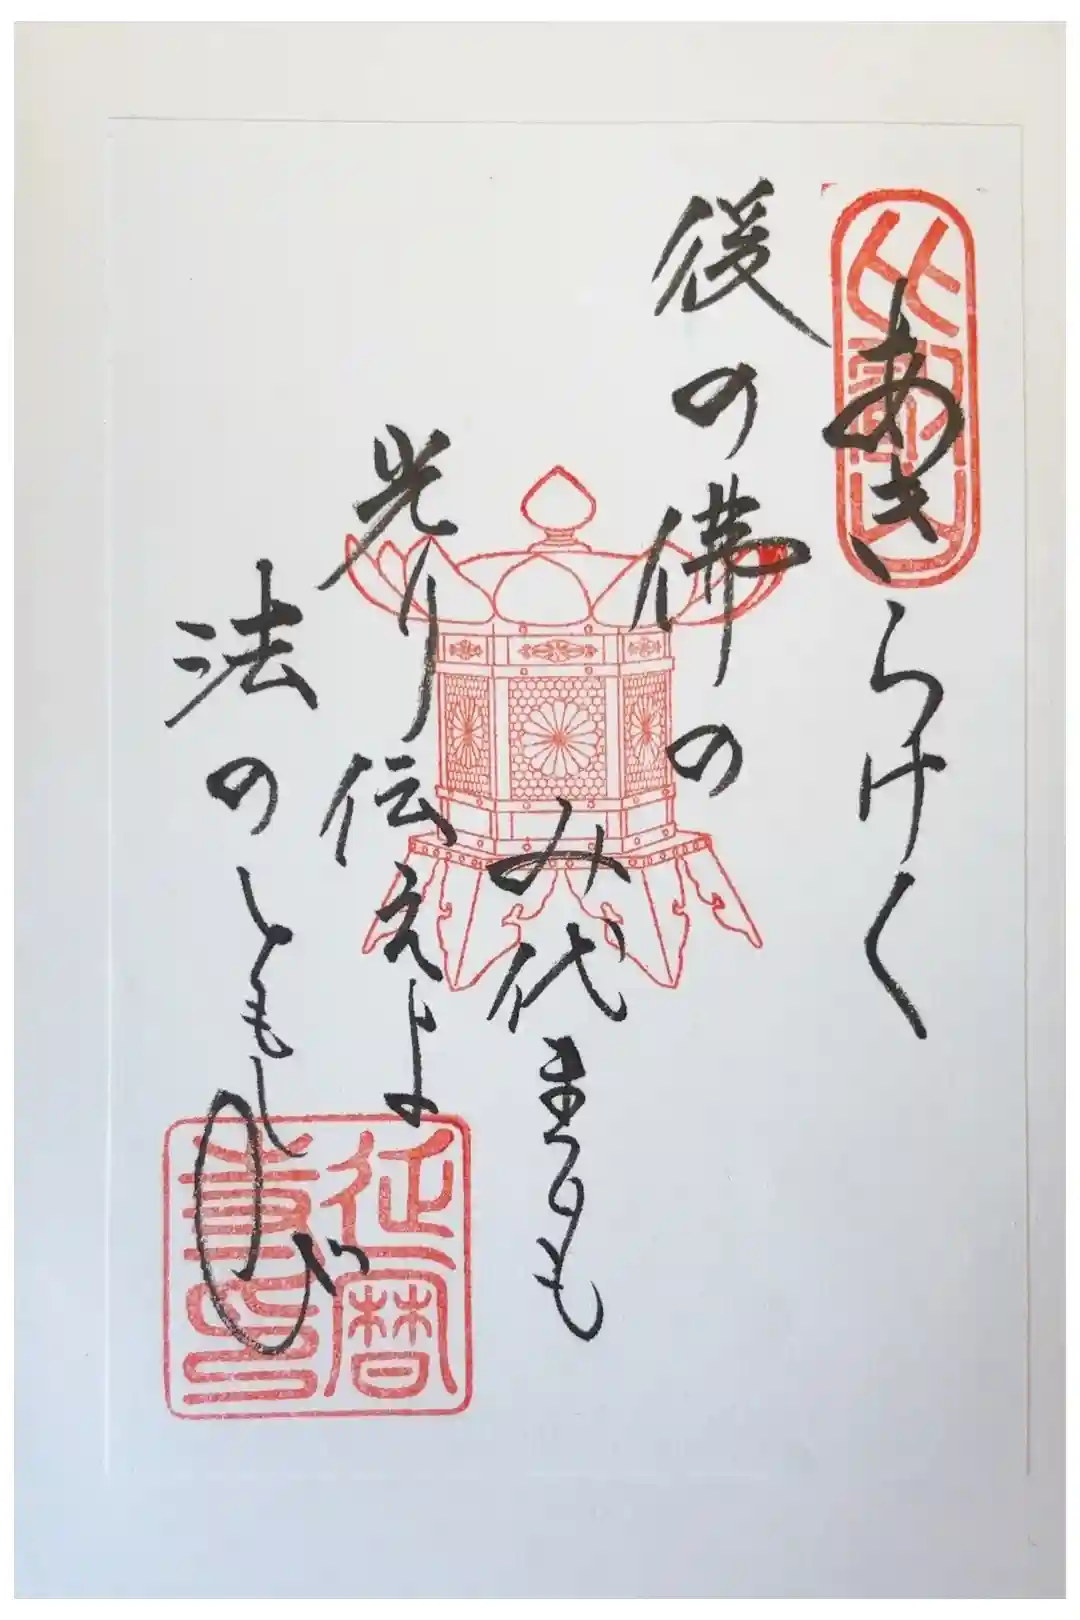 比叡山
あきらけく
後の佛の
み代までも
光り伝えよ
法のともしび
延暦